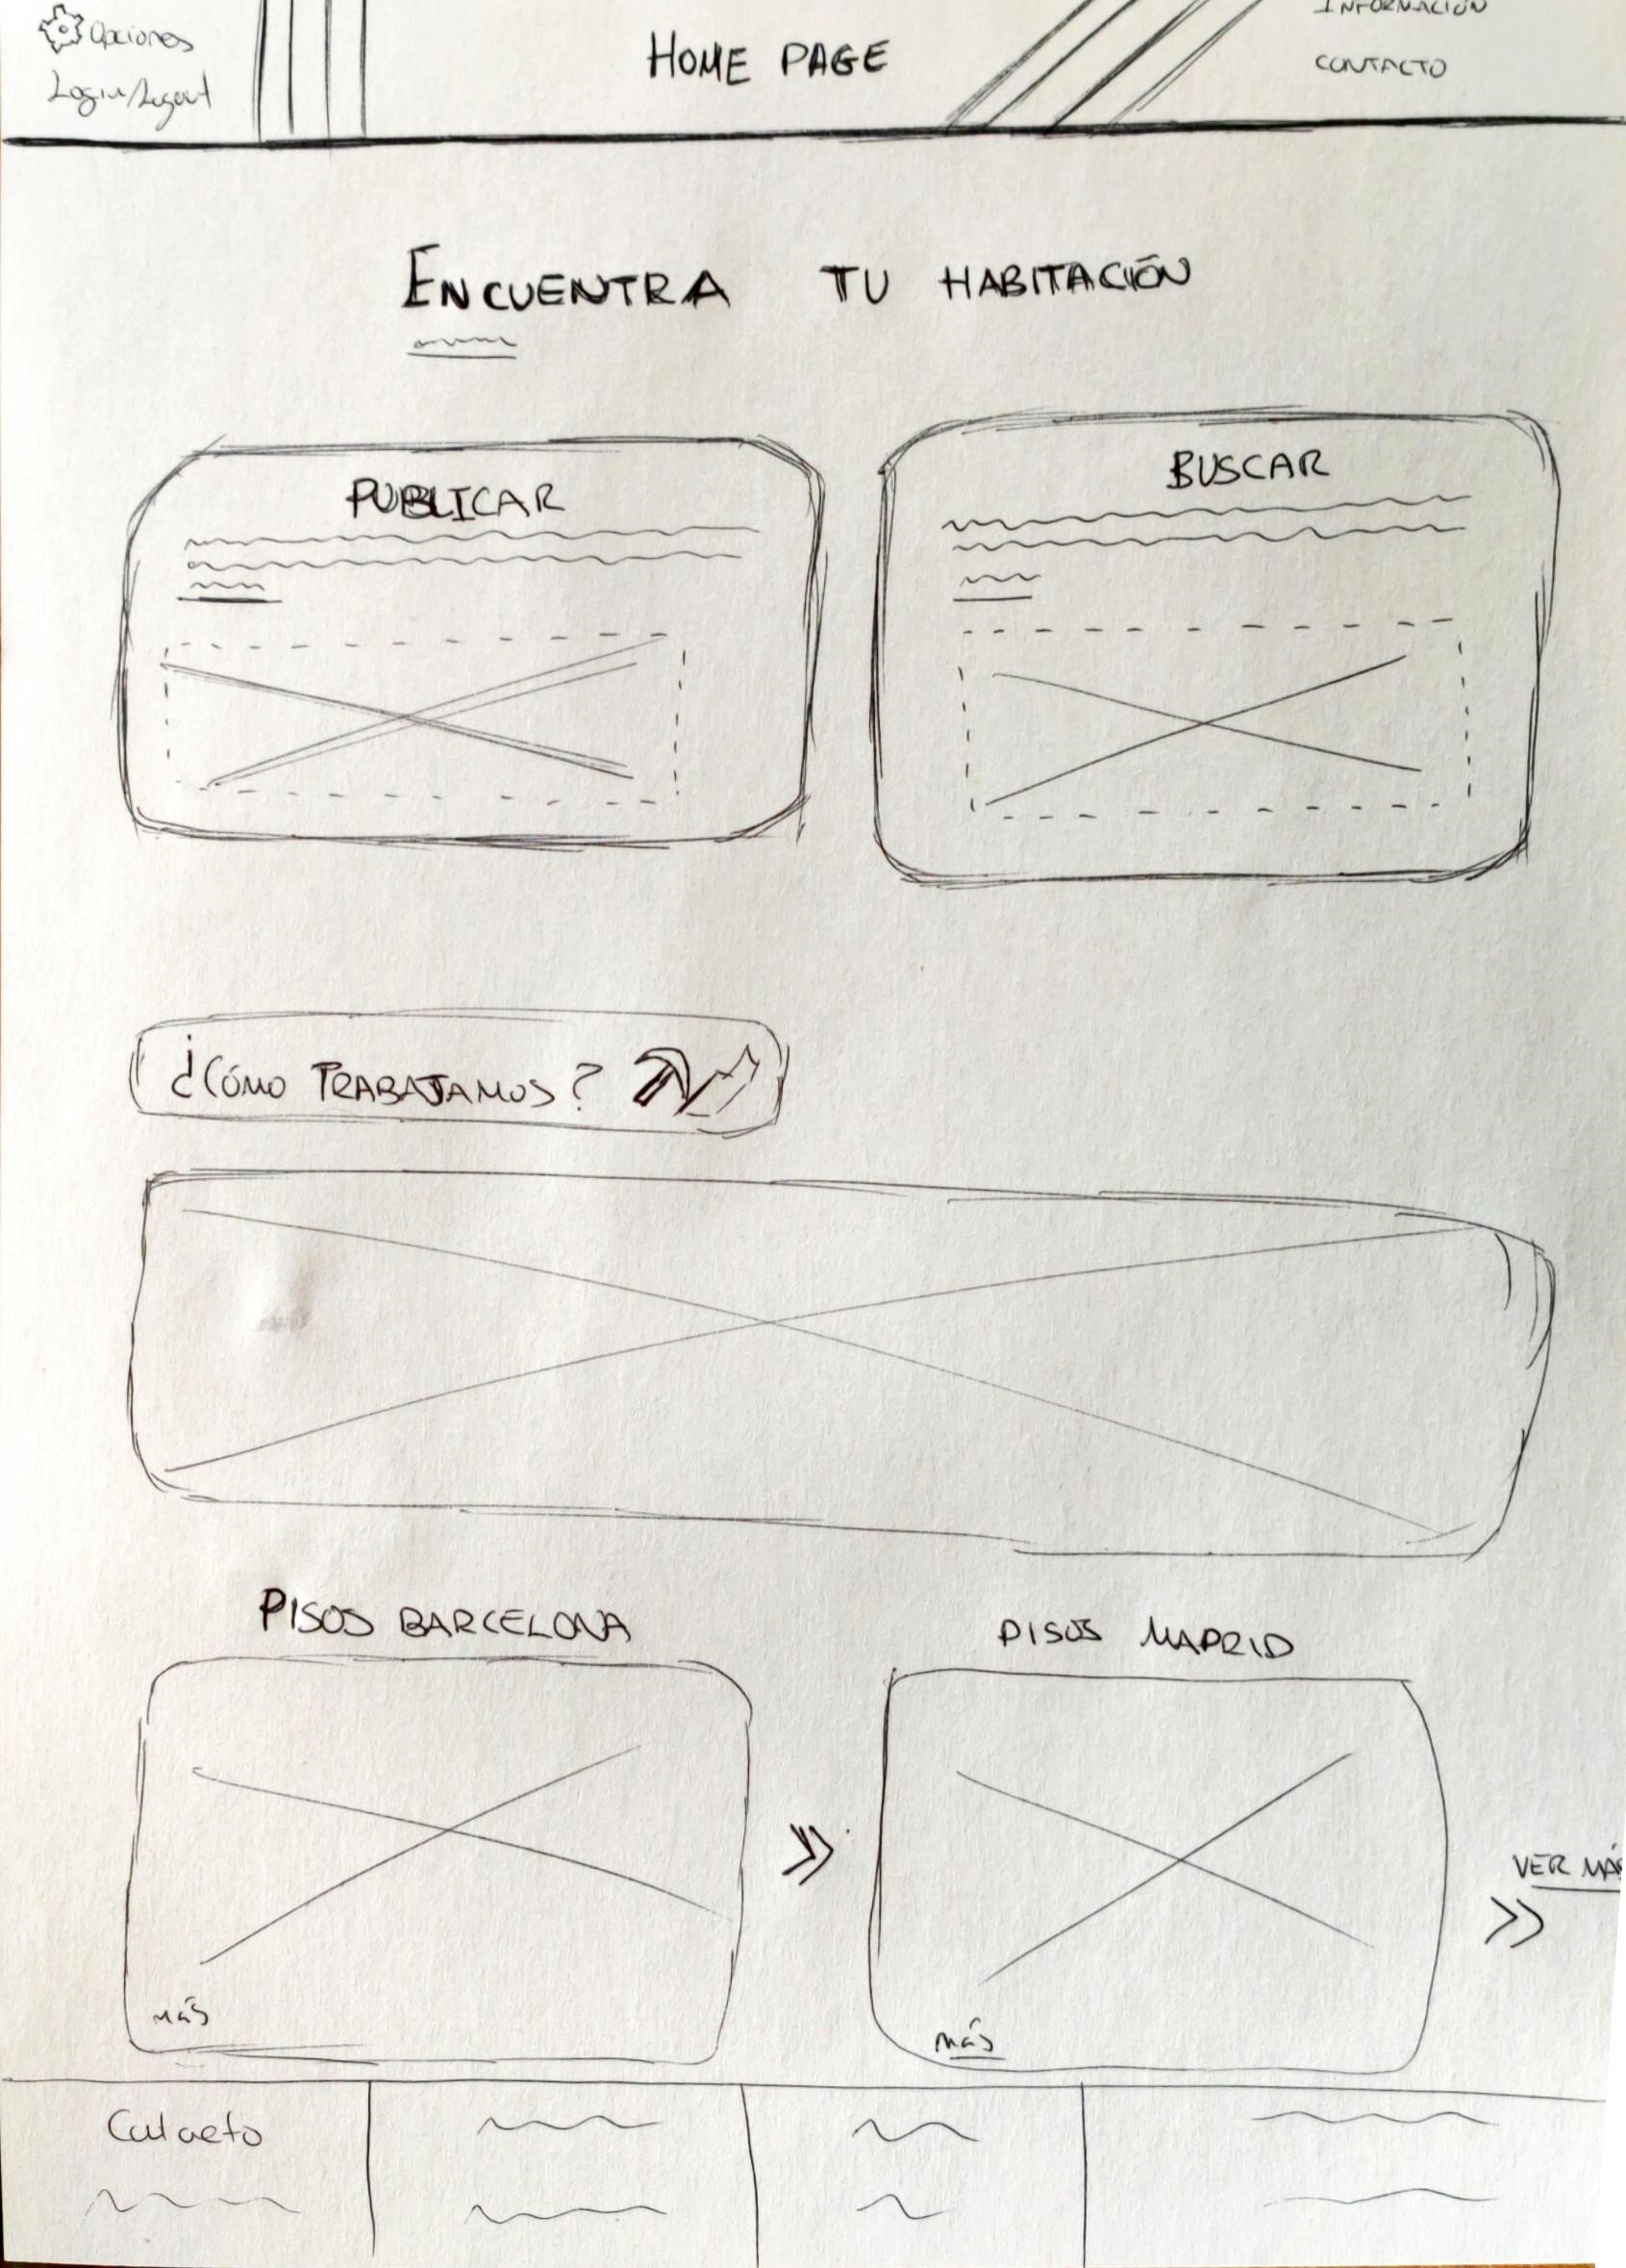 Opciones
Login/Logout
HOME PAGE
INFORMACIÓN
CONTACTO
ENCUENTRA TU HABITACIÓN
PUBLICAR
BUSCAR
¿CÓMO TRABAJAMOS?
PISOS BARCELONA
PISOS MADRID
VER MÁS
MÁS
MÁS
Contacto